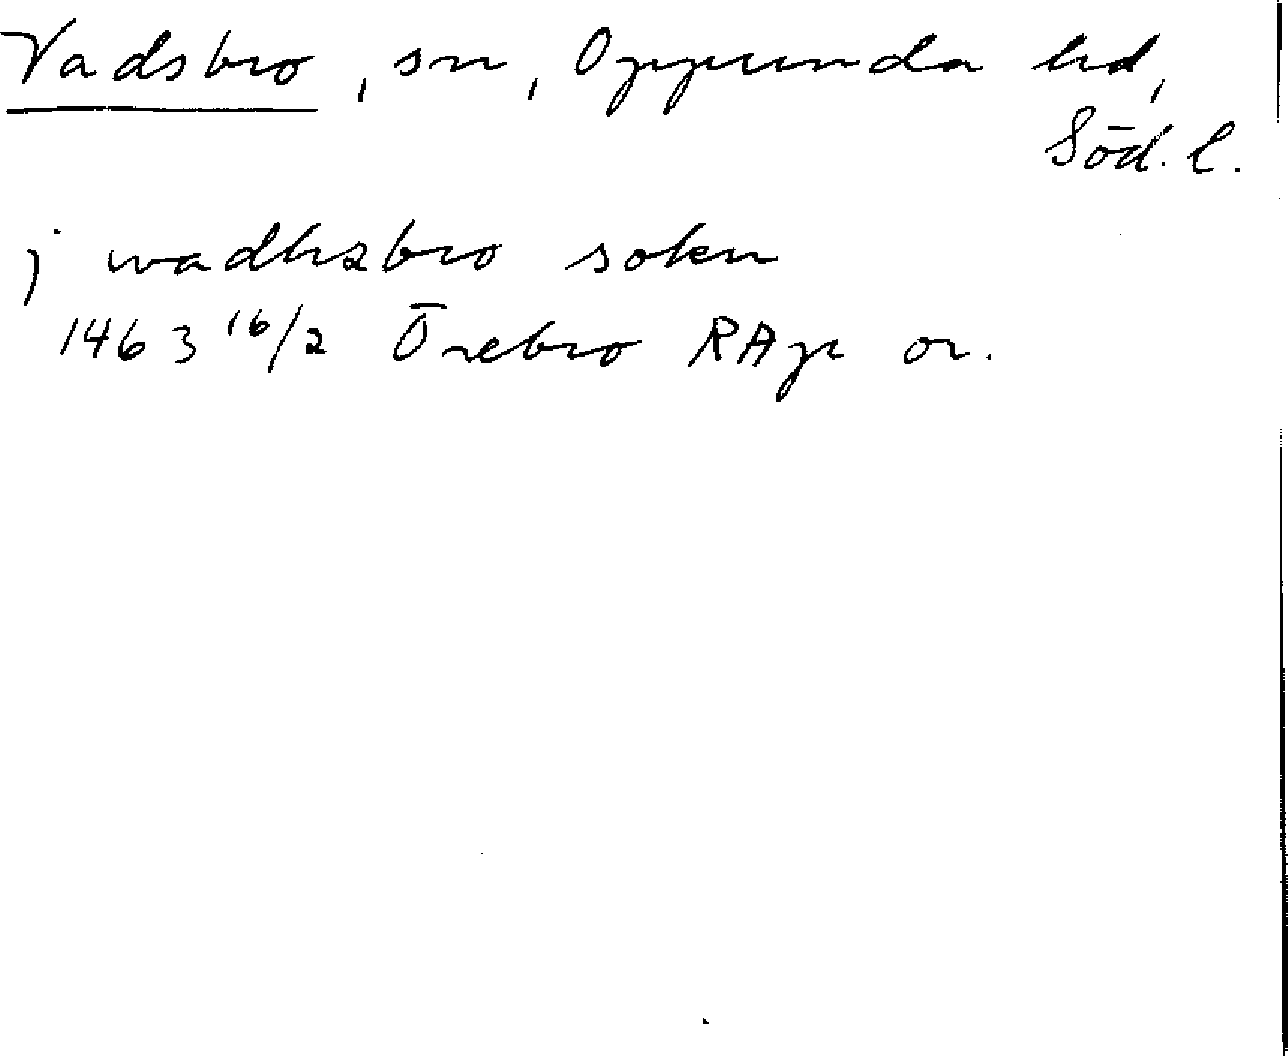 Vadsbro, sn, Oppunda hd,
Söd. l.
j wadhzbro sokn
1463 16/2 Örebro RAp or.